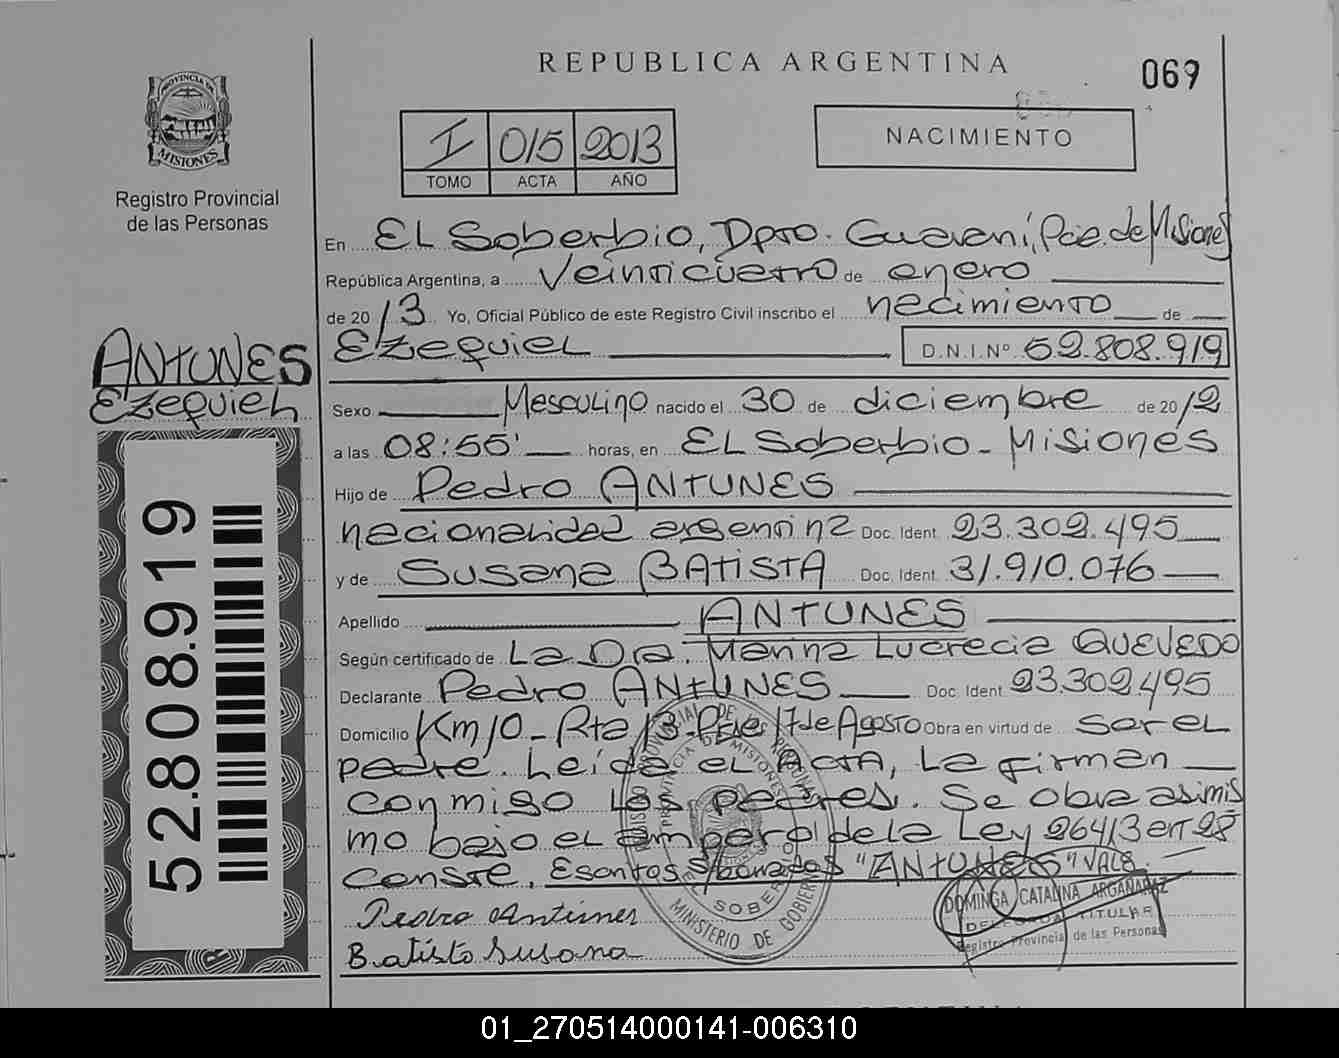 REPUBLICA ARGENTINA
069
PROVINCIA DE MISIONES
Registro Provincial
de las Personas
NACIMIENTO
I 015 2013
TOMO ACTA AÑO
En El Soberbio, Dpto. Guaraní, Pcia. de Misiones
República Argentina, a Veinticuatro de enero
de 2013 Yo, Oficial Público de este Registro Civil inscribo el nacimiento de
Ezequiel D.N.I.Nº 52.808.919
ANTUNES
Ezequiel
52.808.919
Sexo Masculino nacido el 30 de diciembre de 2012
a las 08:55' horas, en El Soberbio - Misiones
Hijo de Pedro ANTUNES
nacionalidad argentina Doc. Ident. 23.302.495
y de Susana BATISTA Doc. Ident. 31.910.076
Apellido ANTUNES
Según certificado de La Dra. Marina Lucrecia QUEVEDO
Declarante Pedro ANTUNES Doc. Ident. 23.302495
Domicilio Km 10 - Rta 13 - Pje 17 de Agosto Obra en virtud de ser el
padre. Leída el Acta, la firman
conmigo los padres. Se obra asimis
mo bajo el amparo de la Ley 26413 art 28
Conste. Esc. "ANTUNES" VALE.
Pedro Antunes
Batista Susana
MINISTERIO DE GOBIERNO
PROVINCIA DE MISIONES
EL SOBERBIO
DOMINGA CATALINA ARGAÑARAZ
DELEGADA TITULAR
Registro Provincial de las Personas
01_270514000141-006310